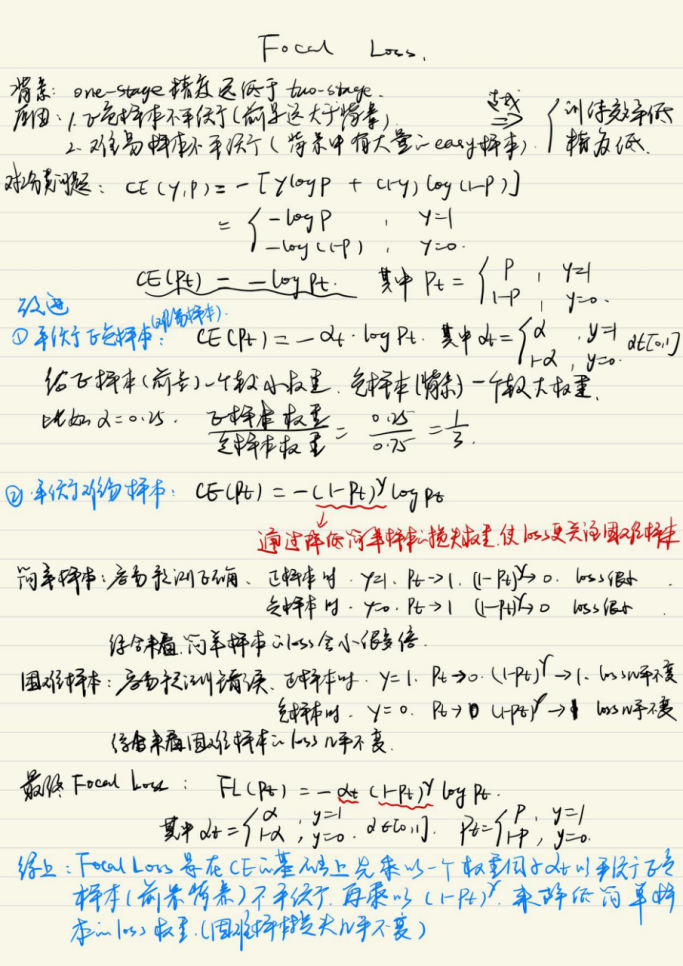 Focal Loss.
背景: one-stage 精度远低于 two-stage.
原因: 1. 正负样本不平衡 (前景远大于背景) 造成 => { 训练效率低
2. 难易样本不平衡 (背景中有大量的easy样本) 精度低.
对分类问题: CE(y,p) = -[ylogp + (1-y)log(1-p)]
= { -logp , y=1
-log(1-p), y=0.
CE(Pt) = -logPt. 其中 Pt = { P, y=1
1-P, y=0.
改进
① 平衡正负样本(难易样本): CE(Pt) = -αt·logPt. 其中 αt = { α , y=1
1-α, y=0. α∈[0,1]
给正样本(前景)一个较小权重, 负样本(背景)一个较大权重.
比如 α=0.25. 正样本权重/负样本权重 = 0.25/0.75 = 1/3.
② 平衡难易样本: CE(Pt) = -(1-Pt)^γ logPt
通过降低简单样本的损失权重,使loss更关注困难样本
简单样本: 容易预测正确、正样本时. y=1. Pt->1. (1-Pt)^γ->0. loss很小
负样本时. y=0. Pt->1 (1-Pt)^γ->0 loss很小
综合来看,简单样本的loss会小很多倍.
困难样本: 容易预测错误、正样本时. y=1. Pt->0. (1-Pt)^γ->1. loss几乎不变
负样本时. y=0. Pt->0 (1-Pt)^γ->1 loss几乎不变
综合来看困难样本的loss几乎不变.
最终 Focal Loss: FL(Pt) = -αt (1-Pt)^γ logPt.
其中 αt = { α , y=1 1-α , y=0. α∈[0,1]. Pt = { P, y=1 1-P, y=0.
综上: Focal Loss 是在CE的基础上先乘以一个权重因子αt以平衡正负
样本(前景背景)不平衡, 再乘以 (1-Pt)^γ, 来降低简单样
本的loss权重.(困难样本损失几乎不变)